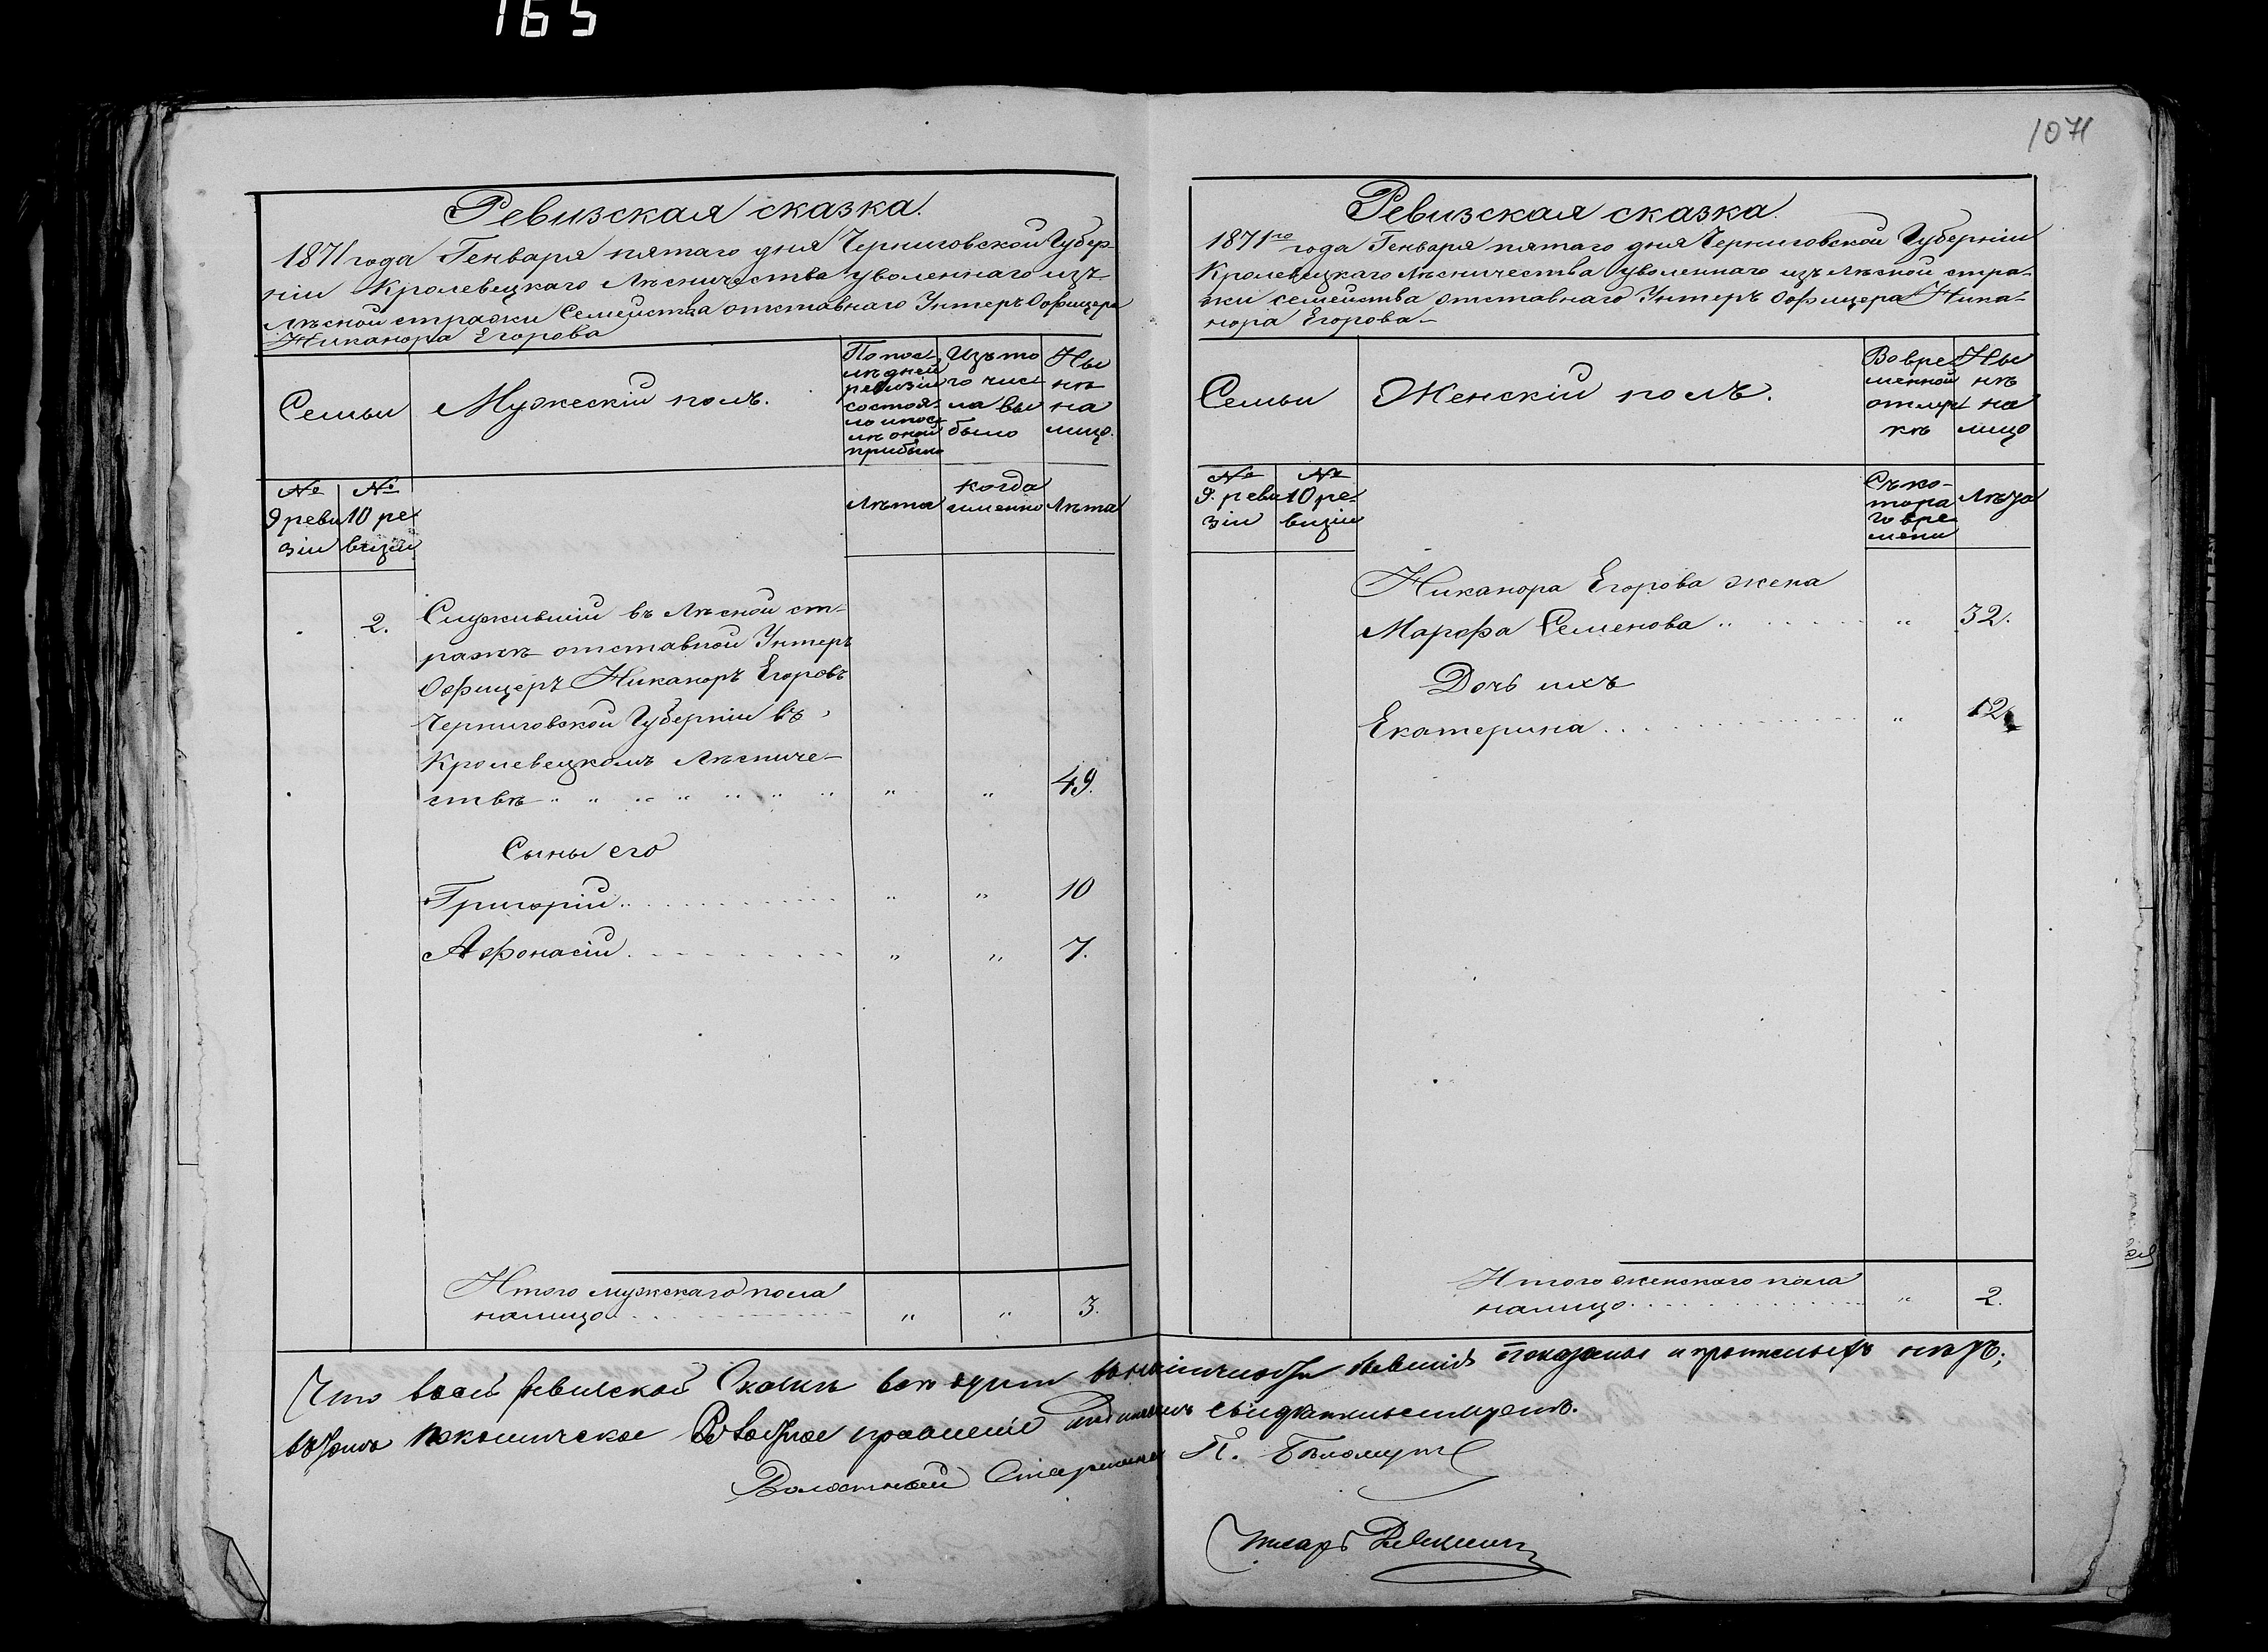 165
1071
Ревизская сказка.
1871 года Генваря пятаго дня Черниговской Губер-
ніи Кролевецкаго Лѣсничества уволеннаго изъ
Лѣсной стражи Семейства отставнаго Унтеръ Офицера
Никанора Егорова
Семьи
Мужескій полъ.
По пос-
лѣдней
ревизіи
состоя-
ло и пос-
лѣ оной
прибыло
Изъ то
го чис
ла вы
было
Ны
нѣ
на
лицо.
№
9 реви
зіи
№
10 ре
визіи
Лѣта
когда
именно
Лѣта
2.
Служившій въ Лѣсной ст-
ражѣ отставной Унтеръ
Офицеръ Никаноръ Егоровъ
Черниговской Губерніи въ
Кролевецкомъ Лѣсниче-
ствѣ " " " " " " " " " 49.
Сыны его
Григорій " " 10
Афонасій " " 7.
Итого мужскаго пола
налицо " " 3.
Ревизская сказка.
1871го года Генваря пятаго дня Черниговской Губерніи
Кролевецкаго Лѣсничества уволеннаго изъ Лѣсной стра-
жи семейства отставнаго Унтеръ Офицера Ника-
нора Егорова
Семьи
Женскій полъ.
Во вре
менной
отлуч
кѣ
Ны
нѣ
на
лицо
№
9. реви
зіи
№
10 ре-
визіи
Съ ко-
тора
го вре
мени
Лѣта
Никанора Егорова жена
Марфа Семенова " " 32.
Дочь ихъ
Екатерина " 12
Итого женскаго пола
налицо " 2.
Что в сей ревизской Сказкѣ показаны и нѣтъ;
въ томъ Волостное правленіе свидѣтельствуетъ.
Волостной Старшина П. Бѣломутъ
Писарь